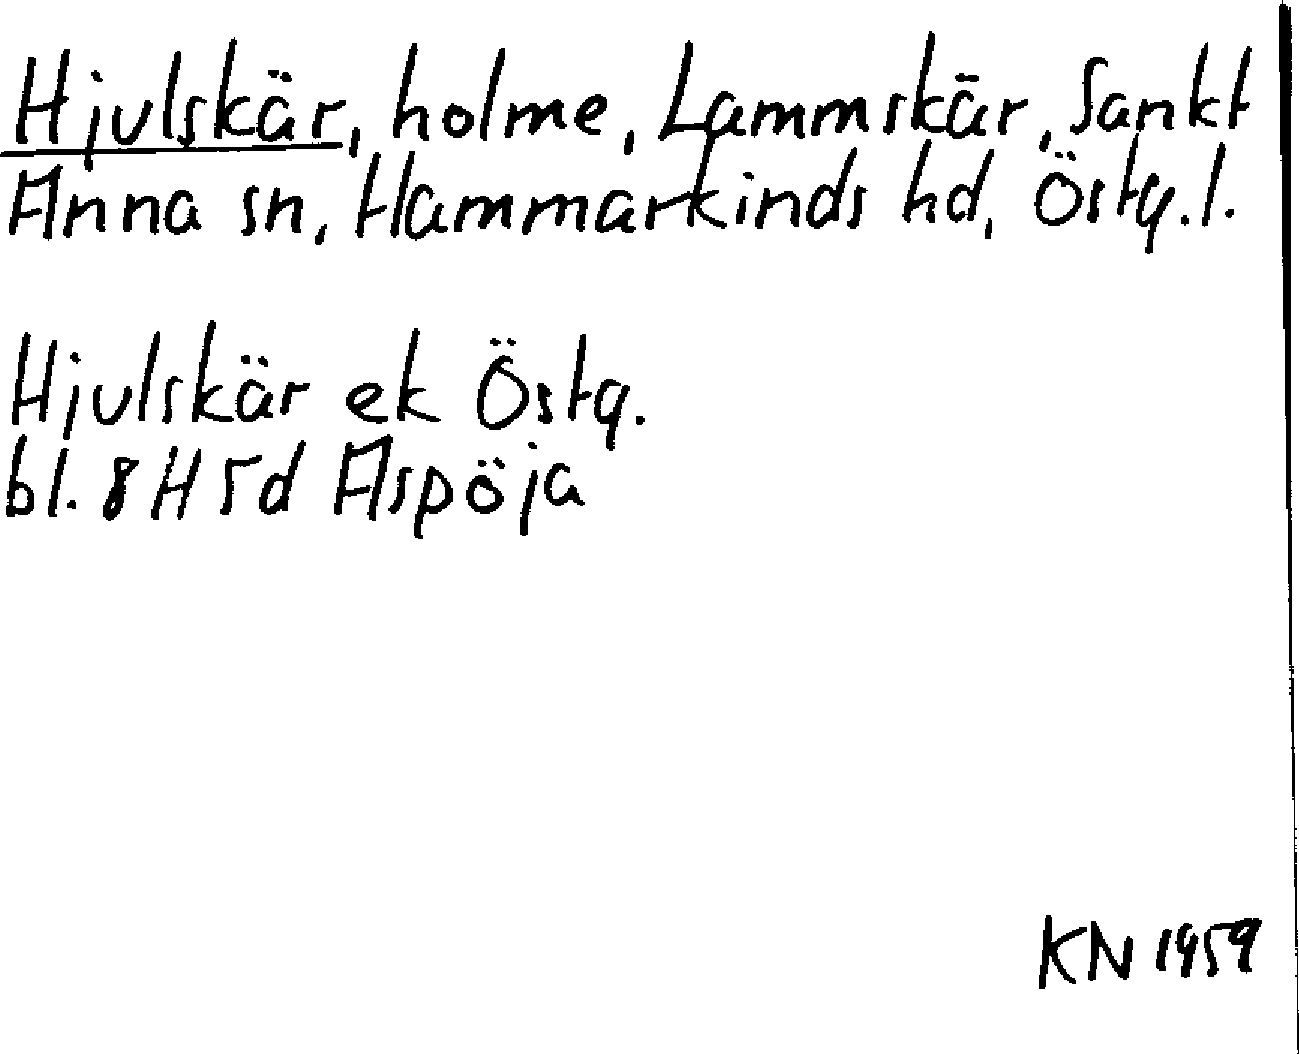 Hjulskär, holme, Lammskär, Sankt
Anna sn, Hammarkinds hd, Östg.l.
Hjulskär ek Östg.
bl. 8H5d Aspöja
KN 1959